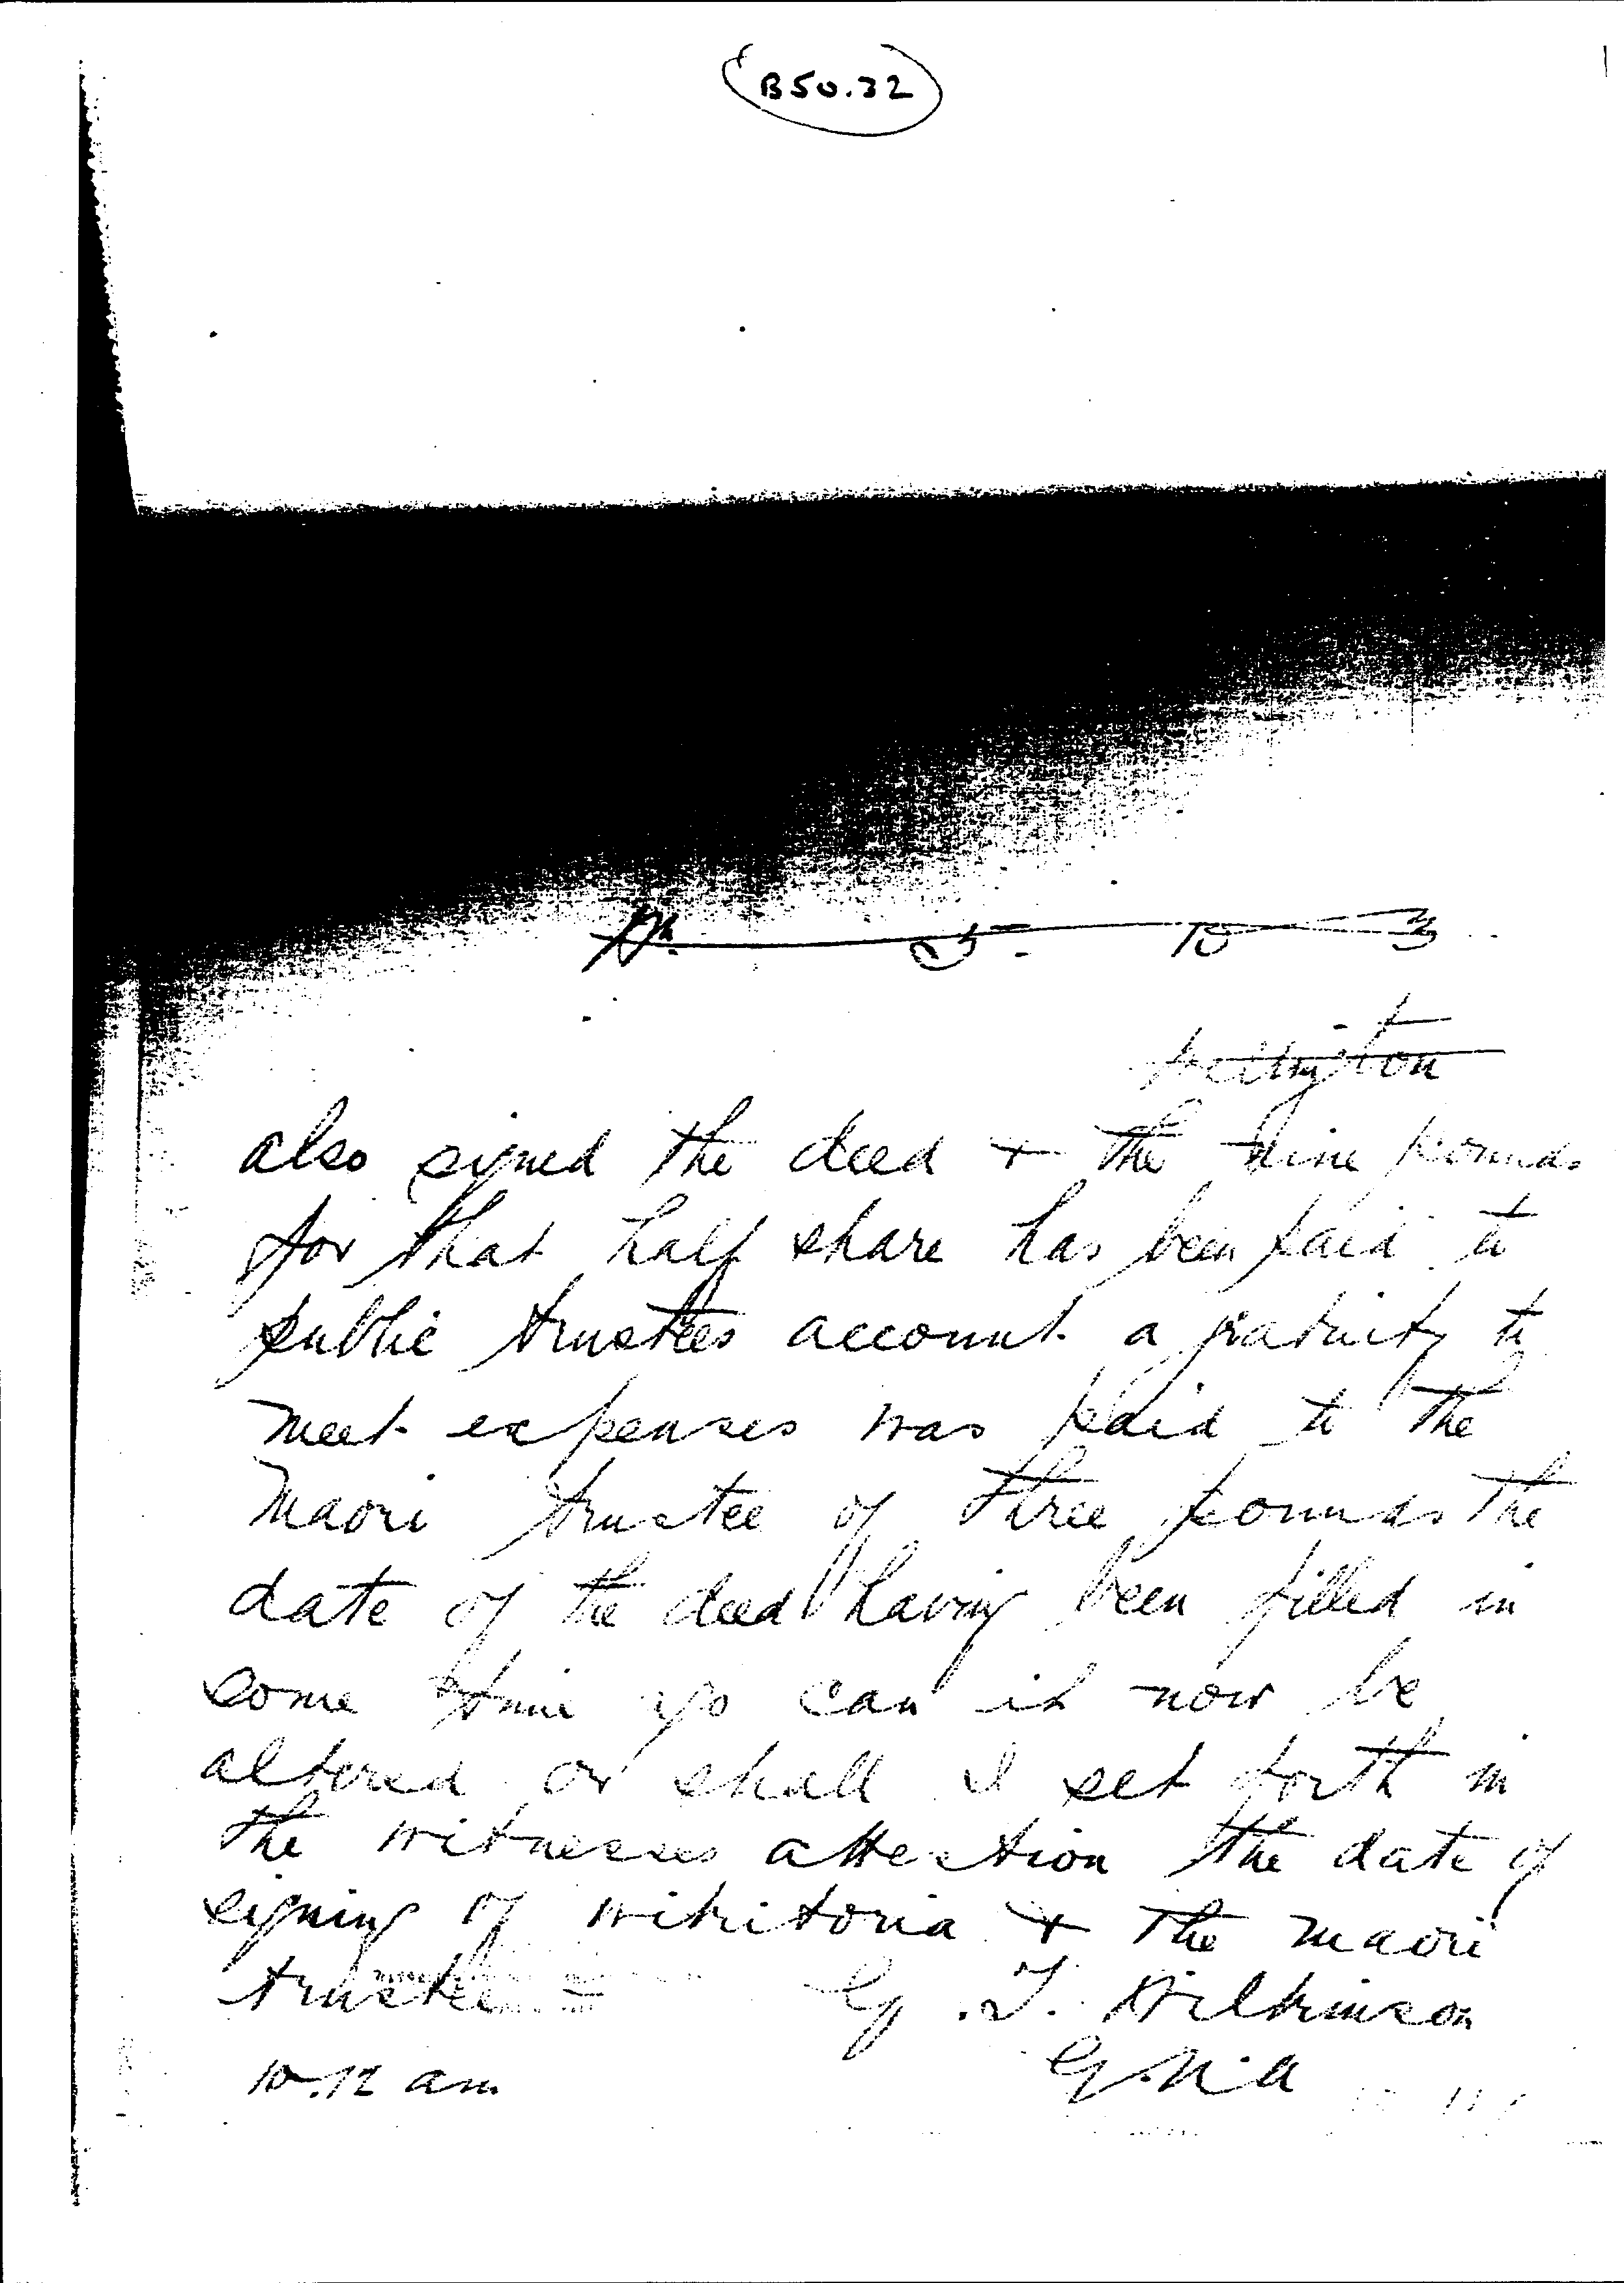 B50.32
Wellington
also signed the deed + the nine pounds
for that half share has been paid to
public trustees account a gratuity to
meet expenses was paid to the
Maori trustee of three pounds the
date of the deed having been filled in
some time ago can it now be
altered or shall I set forth in
the witnesses attestion the date of
signing of Wikitoria + the maori
trustee
G. T. Wilkinson
G.N.A
10.12 am